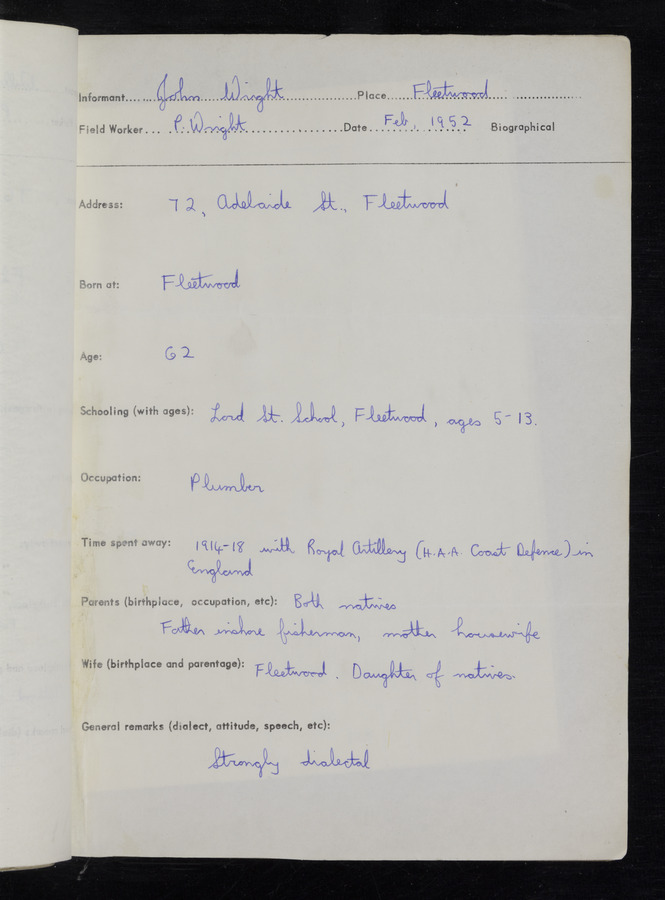 Informant........John Wright................Place.....Fleetwood....................
Field Worker... .P. Wright....................Date...Feb., 1952 Biographical
Address: 72, Adelaide St., Fleetwood
Born at: Fleetwood
Age: 62
Schooling (with ages): Lord St. School, Fleetwood, ages 5-13.
Occupation: Plumber
Time spent away: 1914-18 with Royal Artillery (H.A.A. Coast Defence) in
England
Parents (birthplace, occupation, etc): Both natives
Father inshore fisherman, mother housewife
Wife (birthplace and parentage): Fleetwood. Daughter of natives.
General remarks (dialect, attitude, speech, etc):
Strongly dialectal